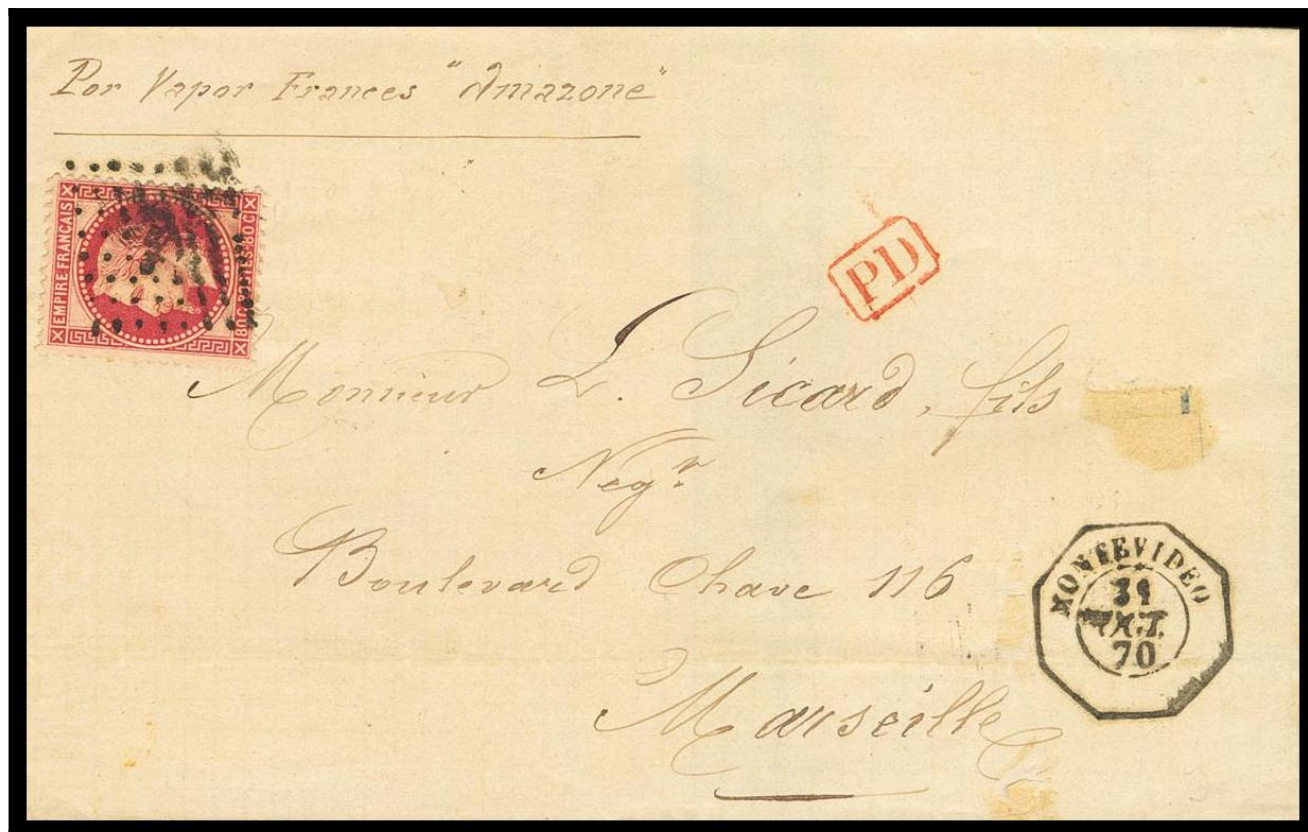 Por Vapor Frances "Amazone"
EMPIRE FRANCAIS
80 C
80 C
PD
Monsieur L. Sicard, fils
Negr
Boulevard Chave 116
Marseille
MONTEVIDEO
31
70